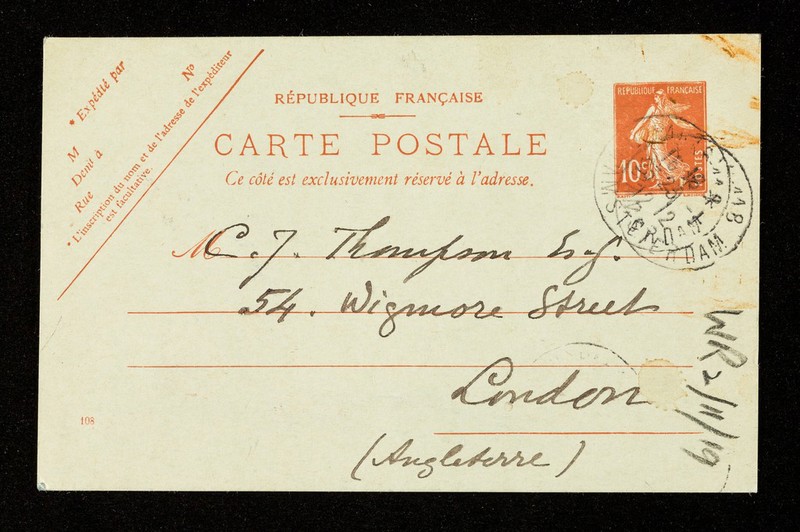 * Expédié par
M
Nº
Demt à
Rue
* L'inscription du nom et de l'adresse de l'expéditeur
est facultative.
RÉPUBLIQUE FRANÇAISE
CARTE POSTALE
Ce côté est exclusivement réservé à l'adresse.
RÉPUBLIQUE FRANÇAISE
10c
POSTES
AMSTERDAM
M C. J. Thompson Esq.
54. Wigmore Street
London
(Angleterre)
WR 2/11/19
108